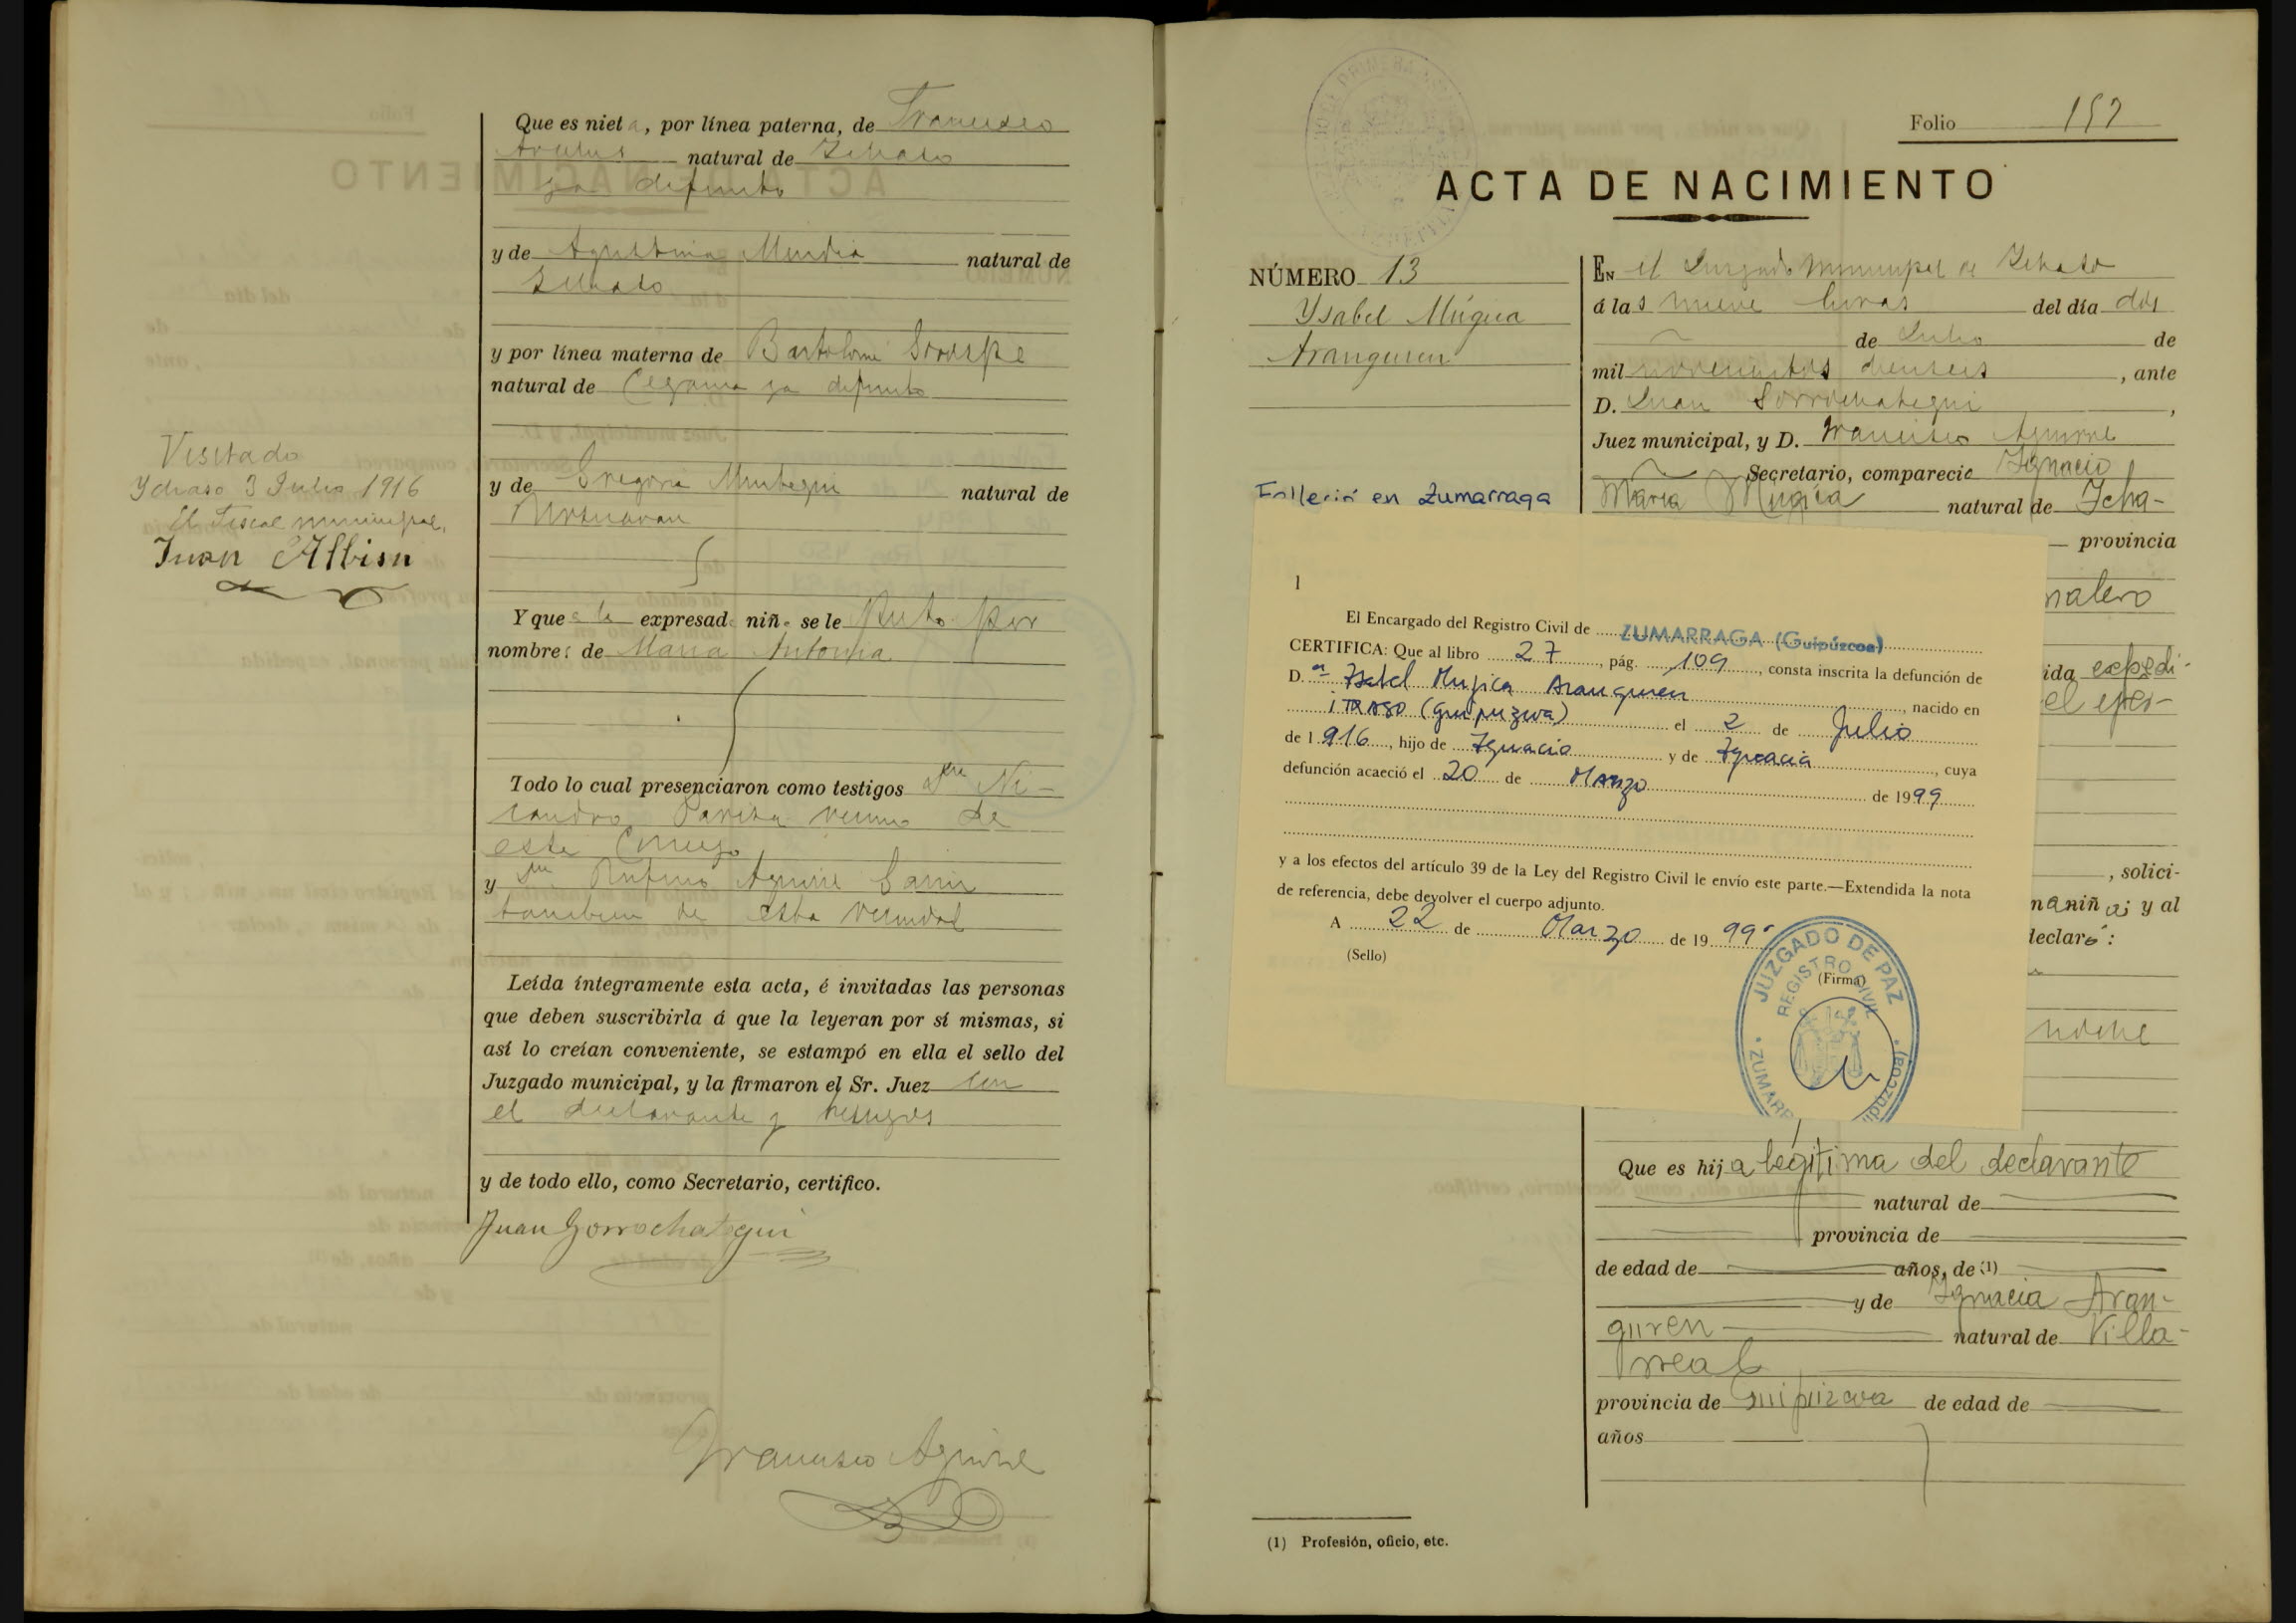 Que es nieta, por línea paterna, de Francisco
natural de
ya difunto
y de Agustina Mendia natural de
y por línea materna de Bartolomé
natural de Cegama ya difunto
y de Gregoria natural de
Visitado
3 Julio 1916
El Fiscal municipal,
Juan Albisu
Y que a la expresada niña se le puso por
nombre de María Antonia
Todo lo cual presenciaron como testigos Dn Ni-
candro vecino de
este Concejo
y Dn Rufino Aguirre
tambien de esta vecindad
Leída íntegramente esta acta, é invitadas las personas
que deben suscribirla á que la leyeran por sí mismas, si
así lo creían conveniente, se estampó en ella el sello del
Juzgado municipal, y la firmaron el Sr. Juez con
el declarante y testigos
y de todo ello, como Secretario, certifico.
Juan Gorrochategui
Francisco Aguirre
Folio 157
ACTA DE NACIMIENTO
NÚMERO 13
Ysabel Múgica
Aranguren
Falleció en Zumarraga
EN el Juzgado municipal de
á las nueve horas del día dos
de Julio de
mil novecientos dieciseis, ante
D. Juan Gorrochategui,
Juez municipal, y D. Francisco Aguirre
Secretario, compareció Ygnacio
María Mugica natural de Ycha-
provincia
nalero
ida expedi-
, solici-
na niña; y al
declaró:
1
El Encargado del Registro Civil de ZUMARRAGA (Guipúzcoa)
CERTIFICA: Que al libro 27, pág. 109, consta inscrita la defunción de
D.ª Isabel Mujica Aranguren, nacido en
itxaso (guipuzcoa) el 2 de Julio
de 1916, hijo de Ignacio y de Ignacia, cuya
defunción acaeció el 20 de Marzo de 1999
y a los efectos del artículo 39 de la Ley del Registro Civil le envío este parte.—Extendida la nota
de referencia, debe devolver el cuerpo adjunto.
A 22 de Marzo de 1999
(Sello)
(Firma)
JUZGADO DE PAZ
REGISTRO CIVIL
Que es hija legítima del declarante
natural de
provincia de
de edad de años, de (1)
y de Ygnacia Aran-
guren natural de Villa-
rreal
provincia de Guipúzcoa de edad de
años
(1) Profesión, oficio, etc.